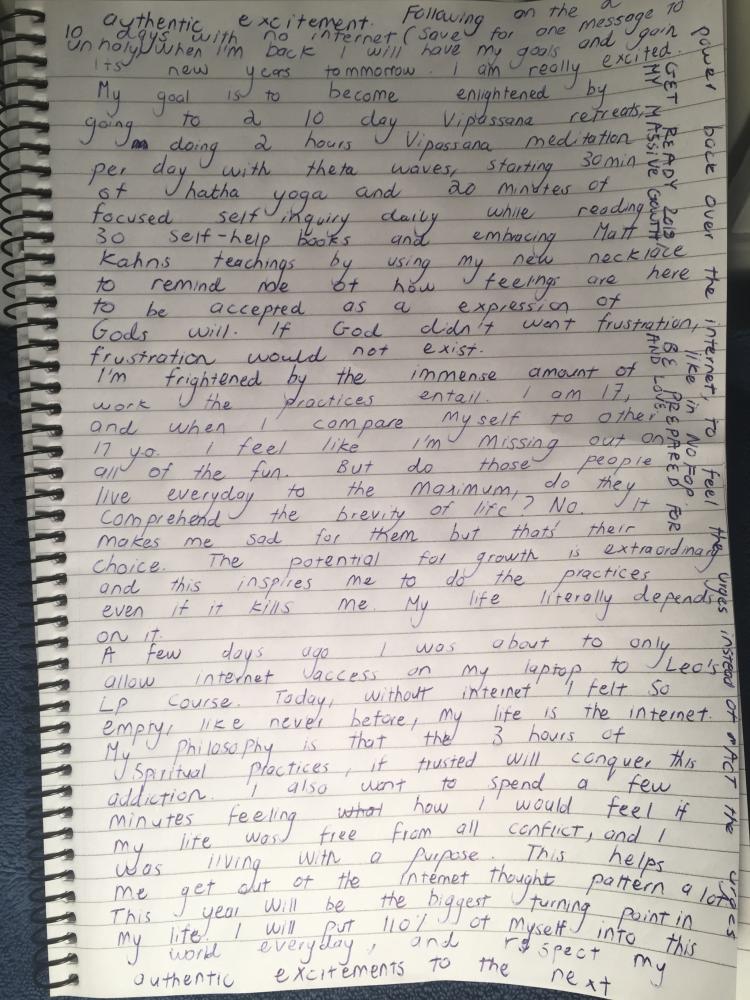 authentic excitement. Following on the a
10 days with no internet (save for one message to
unholy, when I'm back I will have my goals and gain
Its new years tommorrow. I am really excited.
My goal is to become enlightened by
going to 2 10 day Vipassana retreats,
doing 2 hours Vipassana meditation
per day with theta waves, starting 30min
of hatha yoga and 20 minutes of
focused self inquiry daily while reading
30 self-help books and embracing Matt
Kahns teachings by using my new necklace
to remind me of how feelings are here
to be accepted as a expression of
Gods will. If God didn't want frustration,
frustration would not exist.
I'm frightened by the immense amount of
work the practices entail. I am 17,
and when I compare myself to other
17 yo. I feel like I'm missing out on
all of the fun. But do those people
live everyday to the maximum, do they
comprehend the brevity of life? No. It
makes me sad for them but that's their
choice. The potential for growth is extraordinary
and this inspires me to do the practices
even if it kills me. My life literally depends
on it.
A few days ago I was about to only
allow internet access on my laptop to Leo's
LP course. Today, without internet I felt so
empty, like never before, my life is the internet.
My philosophy is that the 3 hours of
spiritual practices, if trusted will conquer this
addiction. I also want to spend a few
minutes feeling what how I would feel if
my life was free from all conflict, and I
was living with a purpose. This helps
me get out of the internet thought pattern a lot
This year will be the biggest turning point in
my life. I will put 110% of myself into this
world everyday, and respect my
authentic excitements to the next
power back over the internet, to feel the urges instead of act the urges
like in NoFap.
GET READY 2019 BE PREPARED FOR
MY MASSIVE GROWTH AND LOVE